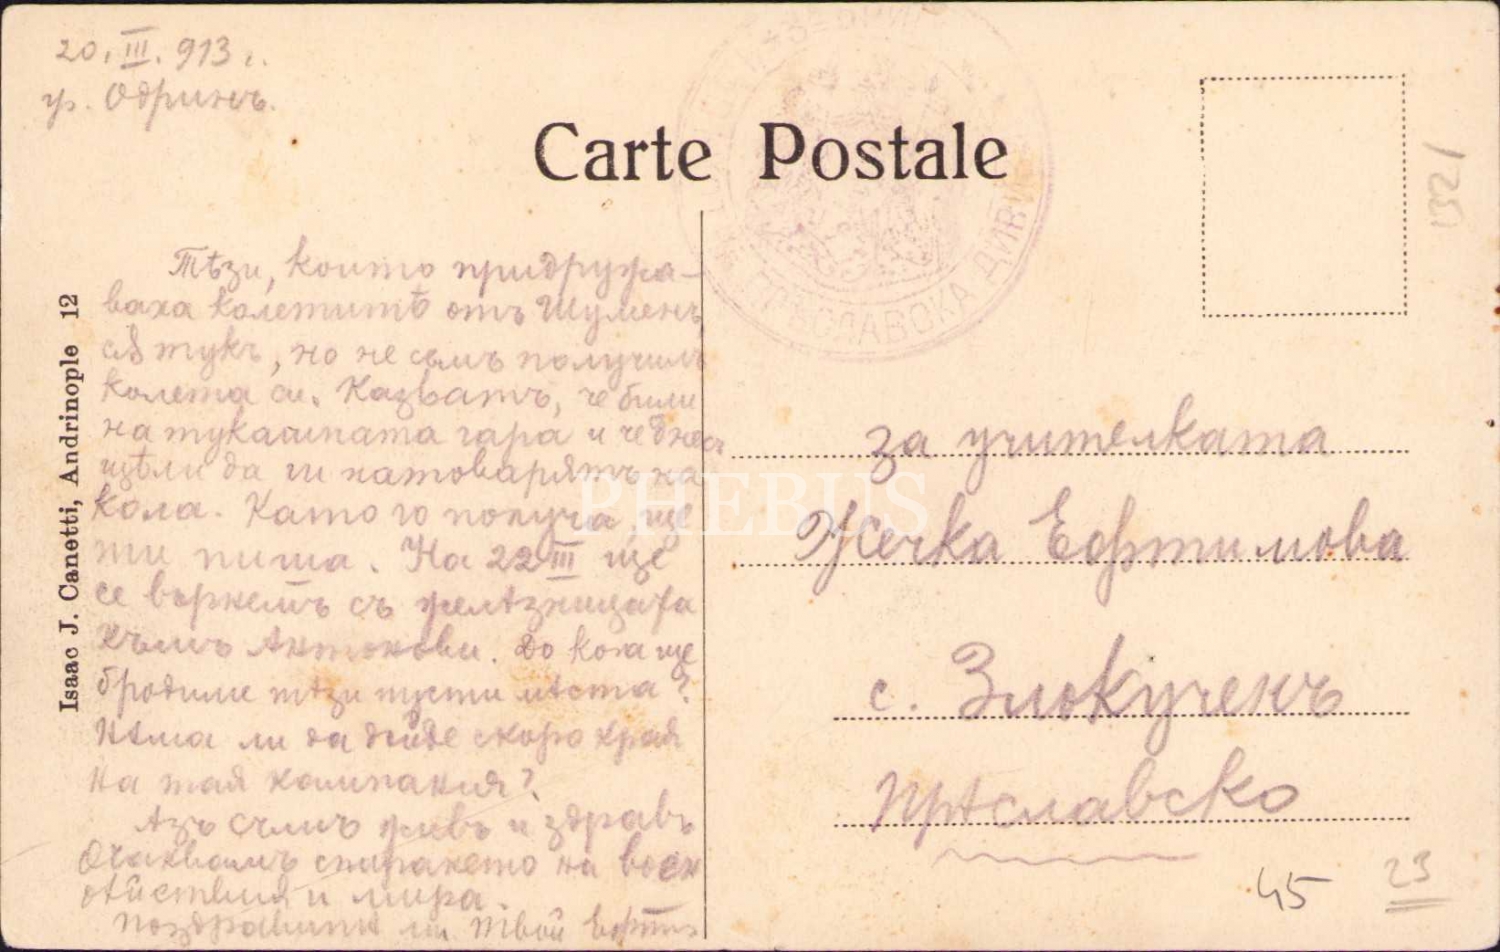 20. III. 913 г.
гр. Одринъ.
Carte Postale
Тѣзи, които придружа-
ваха колетитѣ отъ Шуменъ
сѫ тукъ, но не съмъ получилъ
колета си. Казватъ, че били
на тукашната гара и че днесъ
щѣли да ги натоварятъ на
кола. Като го получа, ще
ти пиша. На 22 III ще
се върнемъ съ желѣзницата
къмъ Антонови. До кога ще
бродиме тѣзи пусти мѣста?
Нѣма ли да дойде скоро края
на тая компания?
Азъ съмъ живъ и здравъ
Очаквамъ спирането на воен
дѣйствия и мира.
поздравити ми Твой Ефтимъ
Isaac J. Canetti, Andrinople 12
ПРѢСЛАВСКА ДИВИЗ
за учителката
Жечка Ефтимова
с. Злокученъ
Прѣславско
45
23
1231
PHEBUS